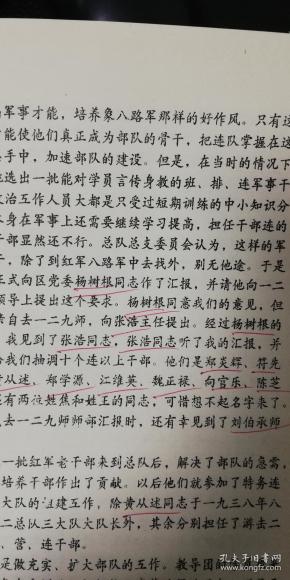 军事才能，培养象八路军那样的好作风。只有这
能使他们真正成为部队的骨干，把连队掌握在这
手中，加速部队的建设。但是，在当时的情况下
选出一批能对学员言传身教的班、排、连军事干
治工作人员大都是只受过短期训练的中小知识分
身在军事上还需要继续学习提高，担任干部连的
部显然还不行。总队总支委员会认为，这样的军
，除了到红军八路军中去找外，别无他途。于是
式向区党委杨树根同志作了汇报，并请他向一二
领导上提出这个要求。杨树根同意我们的意见，但
自去一二九师，向张浩主任提出。经过杨树根的
，我见到了张浩同志，张浩同志听了我的汇报，并
我们抽调十个连以上干部。他们是郑炎辉、符先
从述、郑学源、江维英、魏正禄、向官乐、陈芝
有两位姓焦和姓王的同志；可惜想不起名字来了。
去一二九师师部汇报时，还有幸见到了刘伯承师
一批红军老干部来到总队后，解决了部队的急需，
部队工作作出了贡献。以后他们就参加了特务连
大队的组建工作，除黄从述同志于一九三八年八
二总队三大队大队长外，其余分别担任了游击二
、营、连干部。
是做充实、扩大部队的工作。教导团
孔夫子旧书网